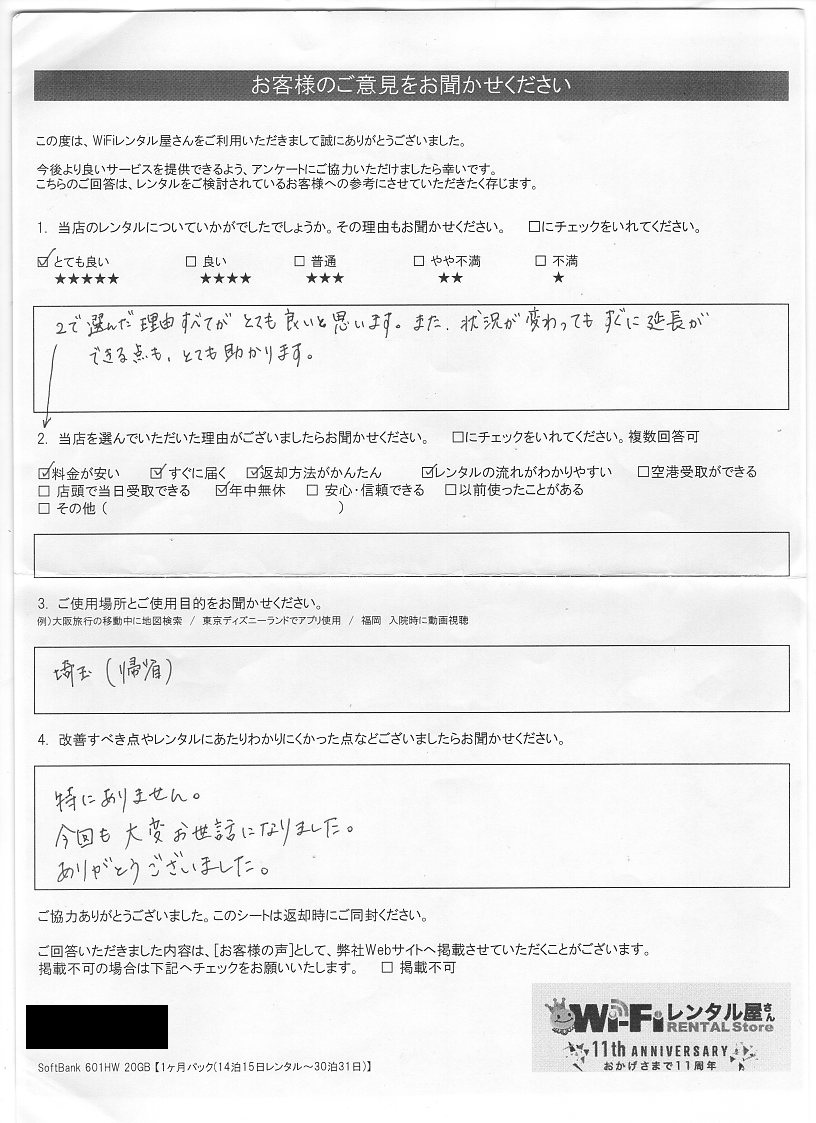 お客様のご意見をお聞かせください
この度は、WiFiレンタル屋さんをご利用いただきまして誠にありがとうございました。
今後より良いサービスを提供できるよう、アンケートにご協力いただけましたら幸いです。
こちらのご回答は、レンタルをご検討されているお客様への参考にさせていただきたく存じます。
1. 当店のレンタルについていかがでしたでしょうか。その理由もお聞かせください。 □にチェックをいれてください。
☑とても良い □ 良い □ 普通 □ やや不満 □ 不満
★★★★★ ★★★★ ★★★ ★★ ★
2で選んだ理由すべてがとても良いと思います。また、状況が変わってもすぐに延長が
できる点も、とても助かります。
2. 当店を選んでいただいた理由がございましたらお聞かせください。 □にチェックをいれてください。複数回答可
☑料金が安い ☑すぐに届く ☑返却方法がかんたん ☑レンタルの流れがわかりやすい □空港受取ができる
□ 店頭で当日受取できる ☑年中無休 □ 安心・信頼できる □以前使ったことがある
□ その他（ ）
3. ご使用場所とご使用目的をお聞かせください。
例）大阪旅行の移動中に地図検索 / 東京ディズニーランドでアプリ使用 / 福岡 入院時に動画視聴
埼玉（帰省）
4. 改善すべき点やレンタルにあたりわかりにくかった点などございましたらお聞かせください。
特にありません。
今回も大変お世話になりました。
ありがとうございました。
ご協力ありがとうございました。このシートは返却時にご同封ください。
ご回答いただきました内容は、[お客様の声]として、弊社Webサイトへ掲載させていただくことがございます。
掲載不可の場合は下記へチェックをお願いいたします。 □ 掲載不可
Wi-Fiレンタル屋さん
RENTAL Store
11th ANNIVERSARY
おかげさまで11周年
SoftBank 601HW 20GB【1ヶ月パック(14泊15日レンタル～30泊31日)】